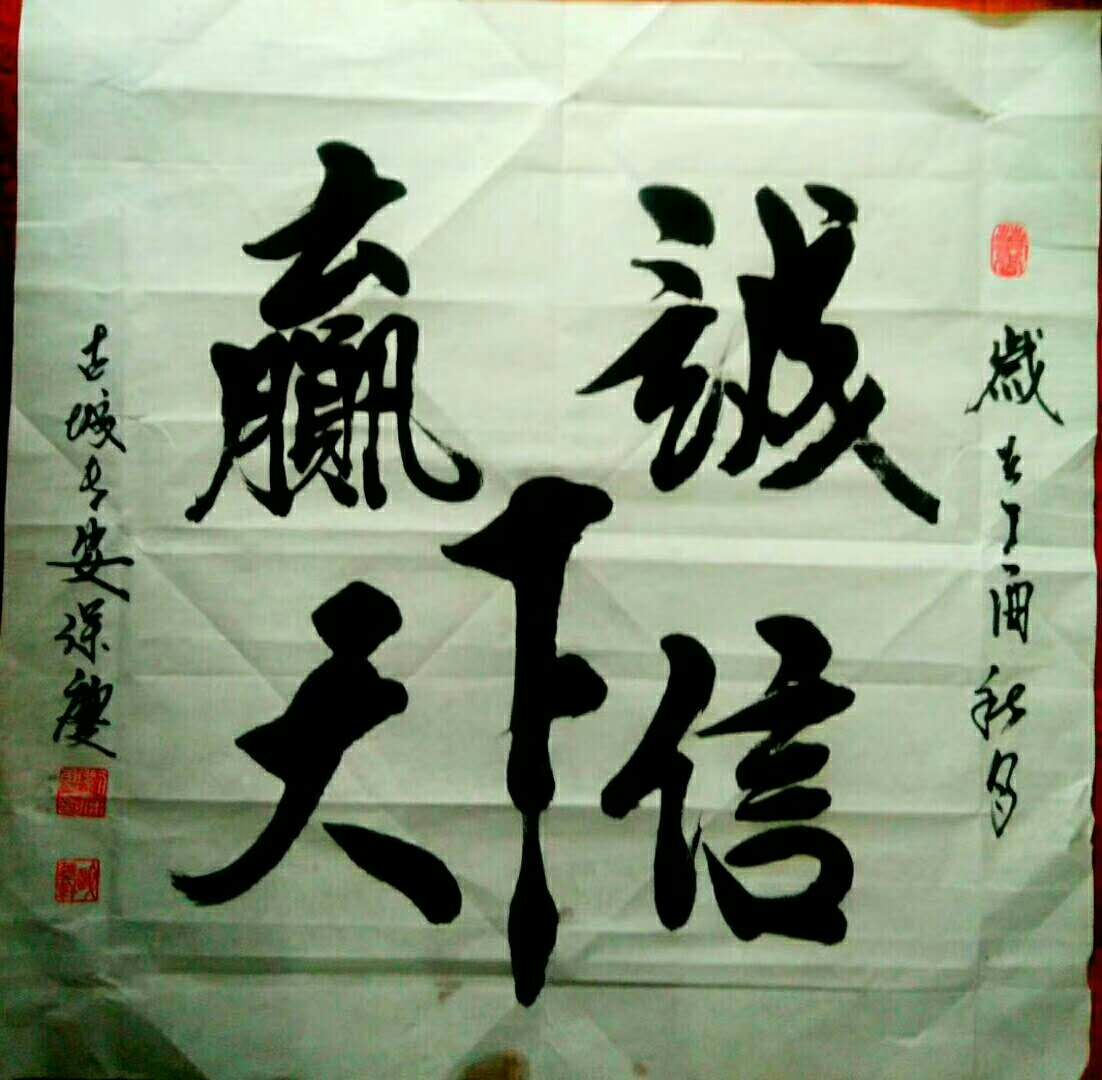 歲在丁酉秋月
誠信
贏天下
古城長安保慶